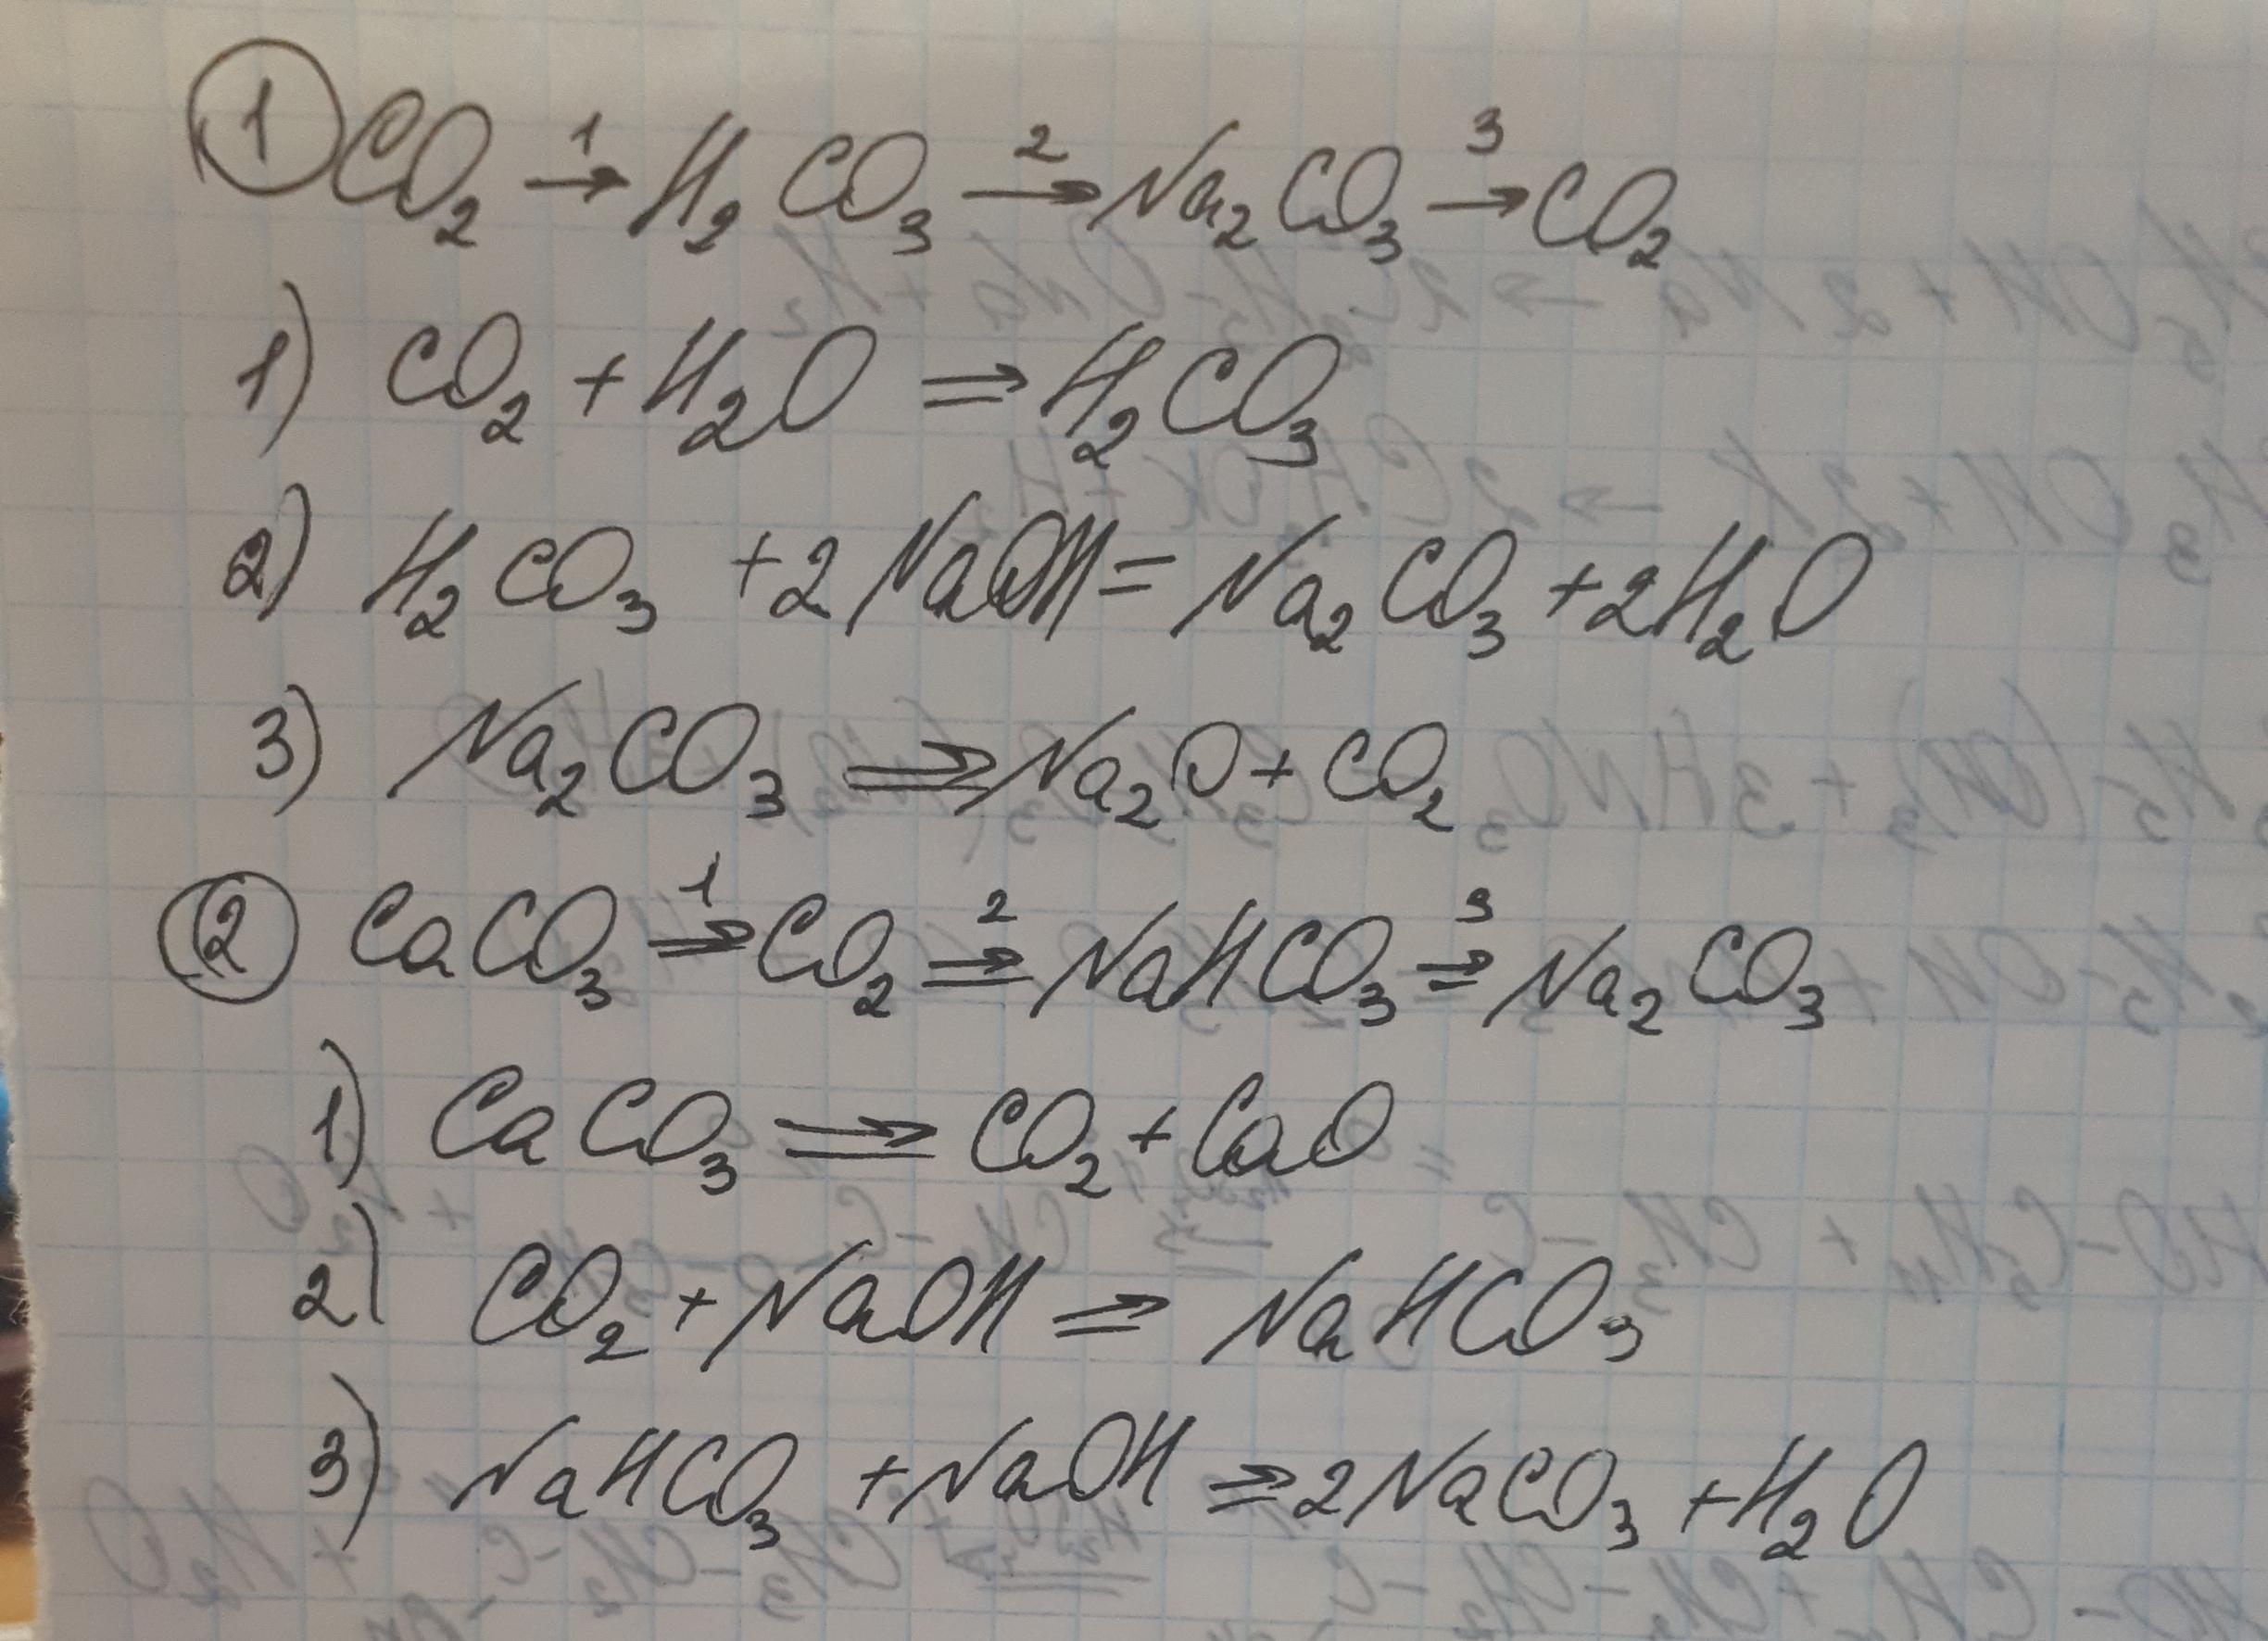 ① CO₂ →¹ H₂CO₃ →² Na₂CO₃ →³ CO₂
1) CO₂ + H₂O ⇒ H₂CO₃
2) H₂CO₃ + 2NaOH = Na₂CO₃ + 2H₂O
3) Na₂CO₃ ⇒ Na₂O + CO₂
② CaCO₃ ⇒¹ CO₂ ⇒² NaHCO₃ ⇒³ Na₂CO₃
1) CaCO₃ ⇒ CO₂ + CaO
2) CO₂ + NaOH ⇒ NaHCO₃
3) NaHCO₃ + NaOH ⇒ 2NaCO₃ + H₂O